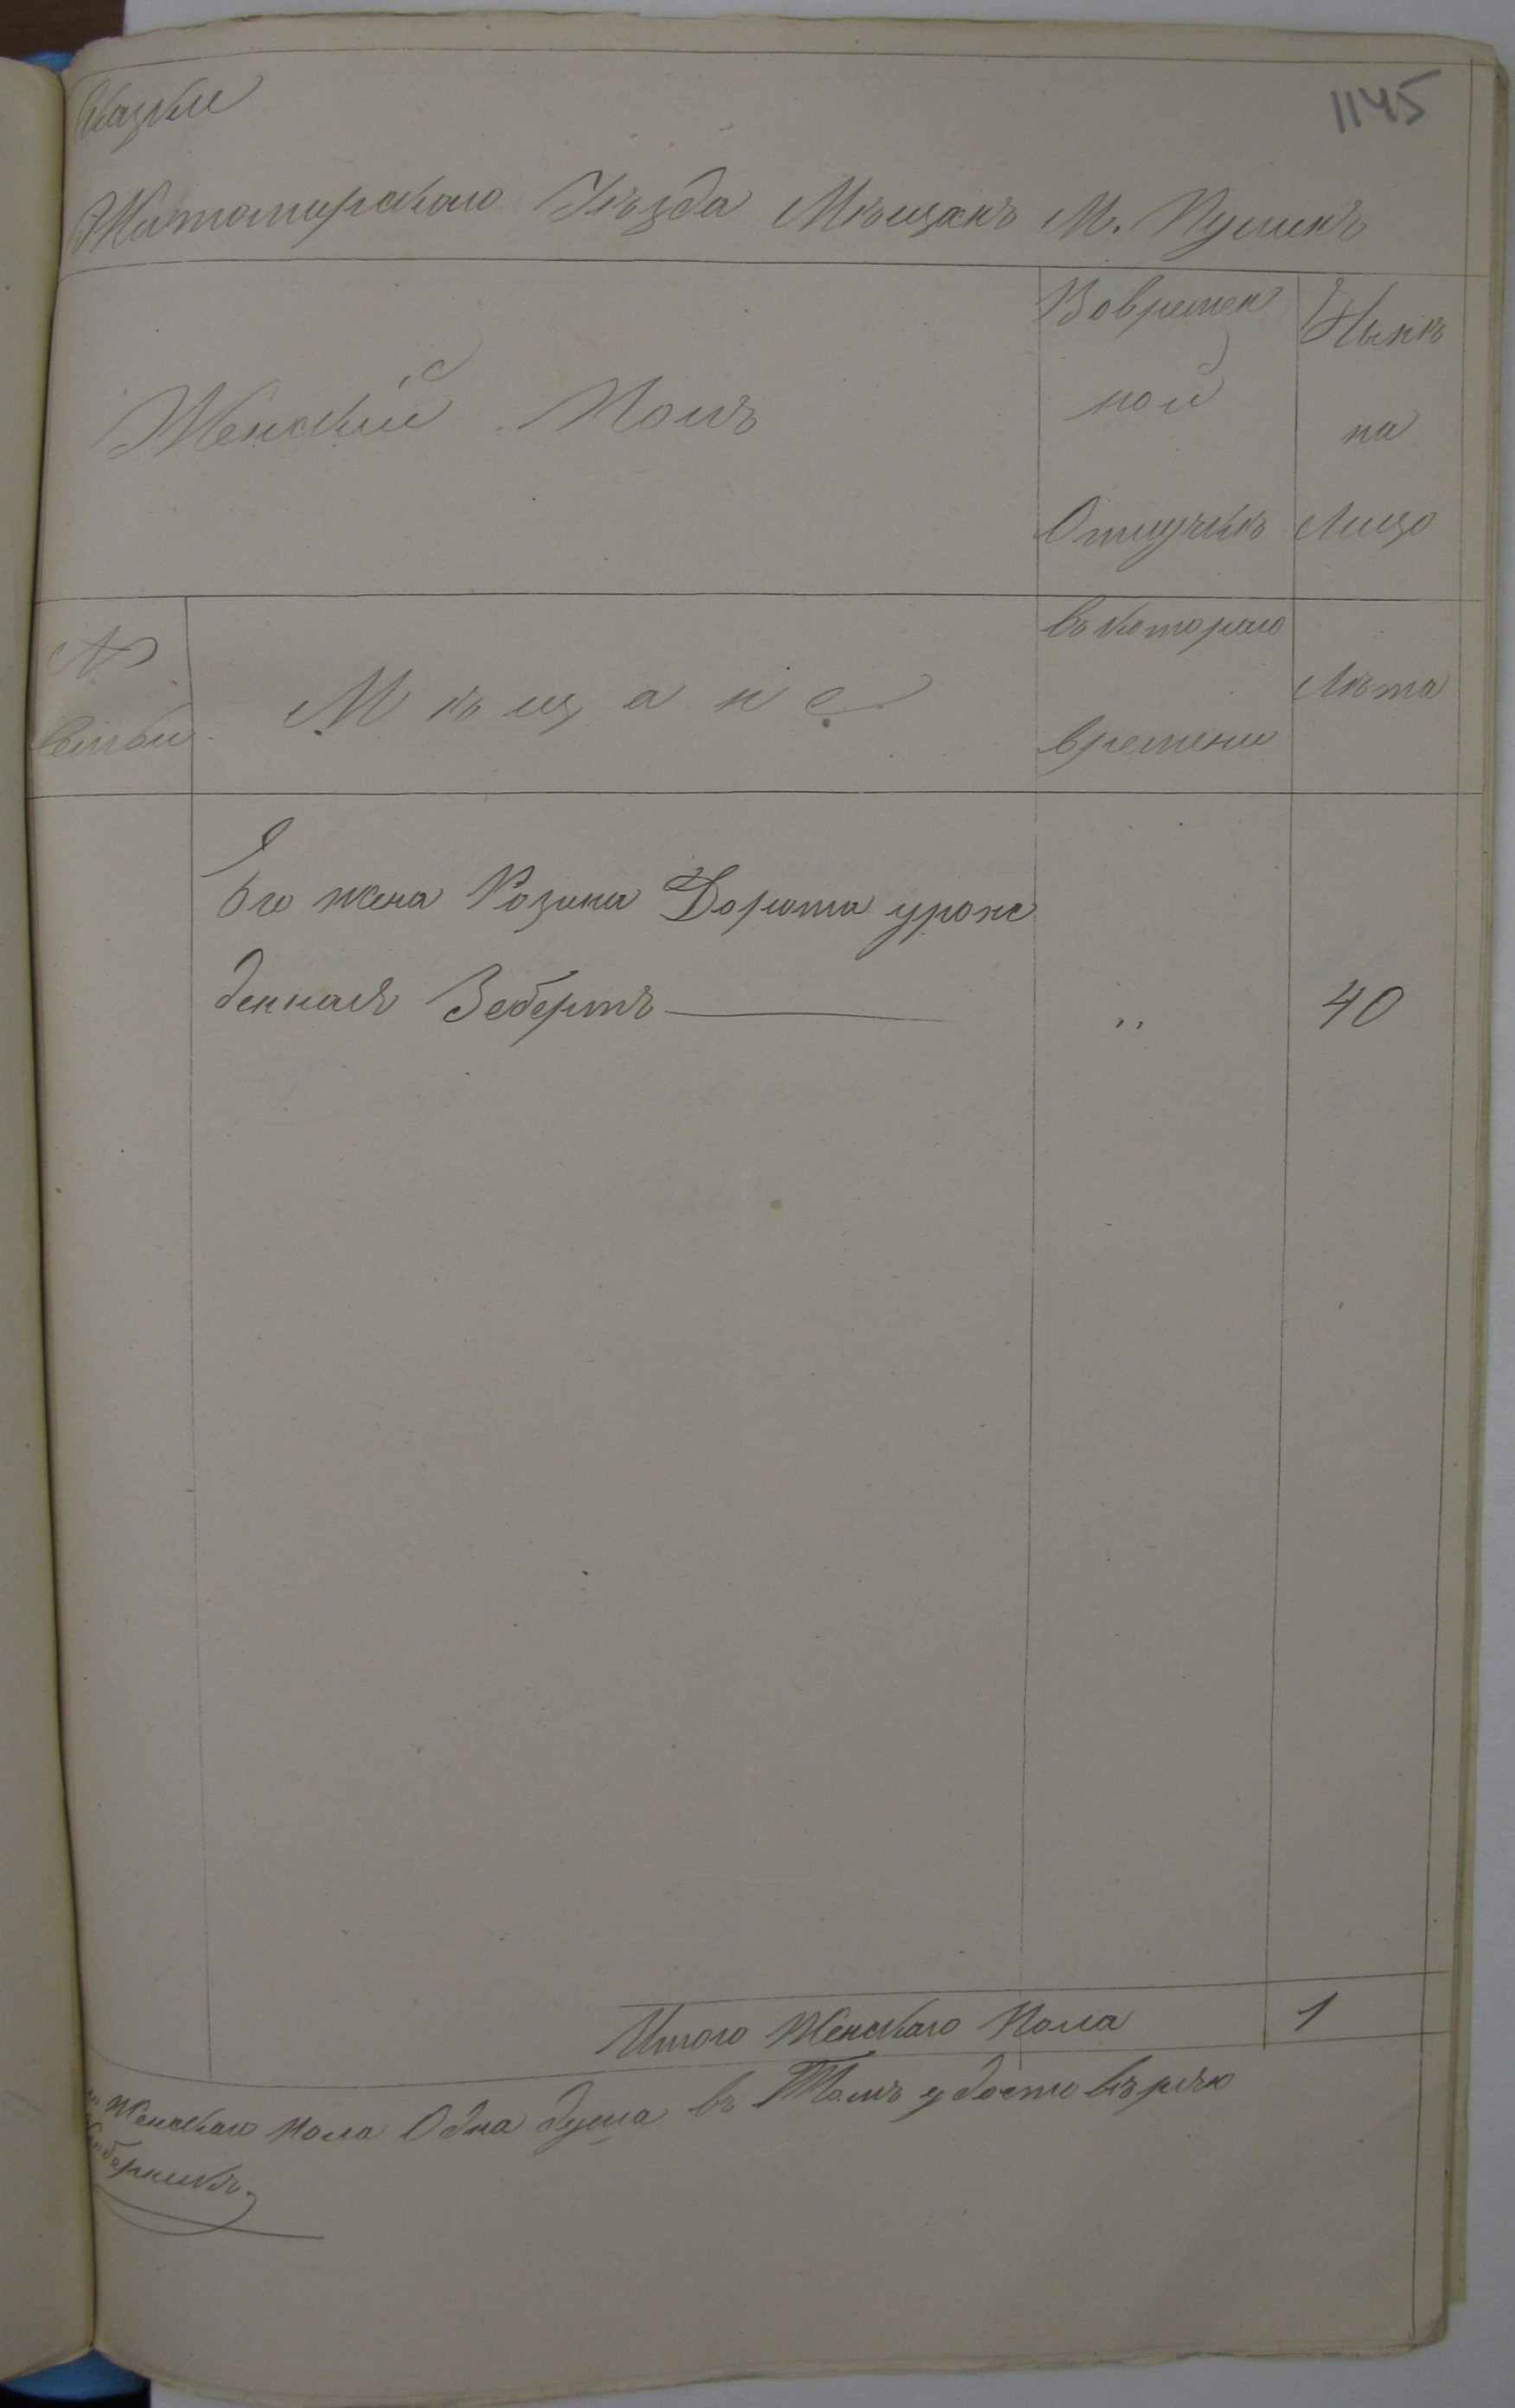 1145
Сказки
Житомирскаго Уѣзда Мѣщанъ М. Пулинъ
Женскій Полъ
Вовремен
ной
Отлучкѣ
Нынѣ
на
Лицо
№
семьи
Мѣщане
съ котораго
времени
Лѣта
Его жена Розина Дорота урож
денная Зебертъ
„
40
Итого Женскаго Пола
1
Женскаго пола Одна душа въ Томъ удостовѣряю
Сборщикъ